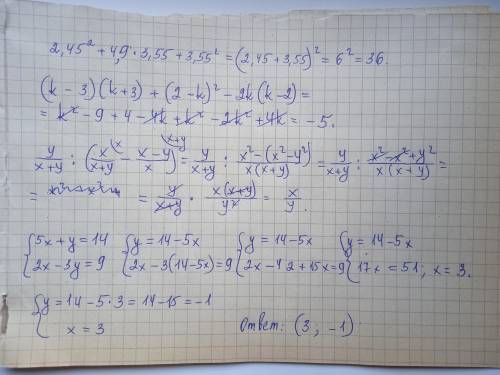 2,45² + 4,9 · 3,55 + 3,55² = (2,45 + 3,55)² = 6² = 36.
(k - 3)(k + 3) + (2 - k)² - 2k(k - 2) =
= k² - 9 + 4 - 4k + k² - 2k² + 4k = -5.
y/(x+y) : (x/(x+y) - (x-y)/x) = y/(x+y) : (x² - (x² - y²))/(x(x+y)) = y/(x+y) : (x² - x² + y²)/(x(x+y)) =
= y/(x+y) · x(x+y)/y² = x/y.
{5x + y = 14 {y = 14 - 5x {y = 14 - 5x {y = 14 - 5x
{2x - 3y = 9 {2x - 3(14 - 5x) = 9 {2x - 42 + 15x = 9 {17x = 51; x = 3.
{y = 14 - 5 · 3 = 14 - 15 = -1
x = 3 Ответ: (3; -1)